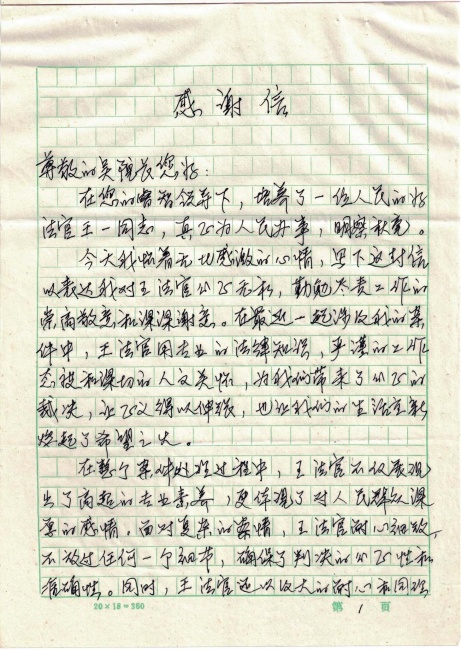 感谢信
尊敬的吴院长您好：
在您的英明领导下，培养了一位人民的好
法官王一同志，真正为人民办事，明察秋毫。
今天我怀着无比感激的心情，写下这封信
以表达我对王法官公正无私，勤勉尽责工作的
崇高敬意和深深谢意。在最近一起涉及我的案
件中，王法官用专业的法律知识，严谨的工作
态度和深切的人文关怀，为我们带来了公正的
裁决，让正义得以伸张，也让我们的生活重新
燃起了希望之火。
在整个案件处理过程中，王法官不仅展现
出了高超的专业素养，更体现了对人民群众深
厚的感情。面对复杂的案情，王法官耐心细致，
不放过任何一个细节，确保了判决的公正性和
准确性。同时，王法官还以极大的耐心和同理
20×18=360 第1页